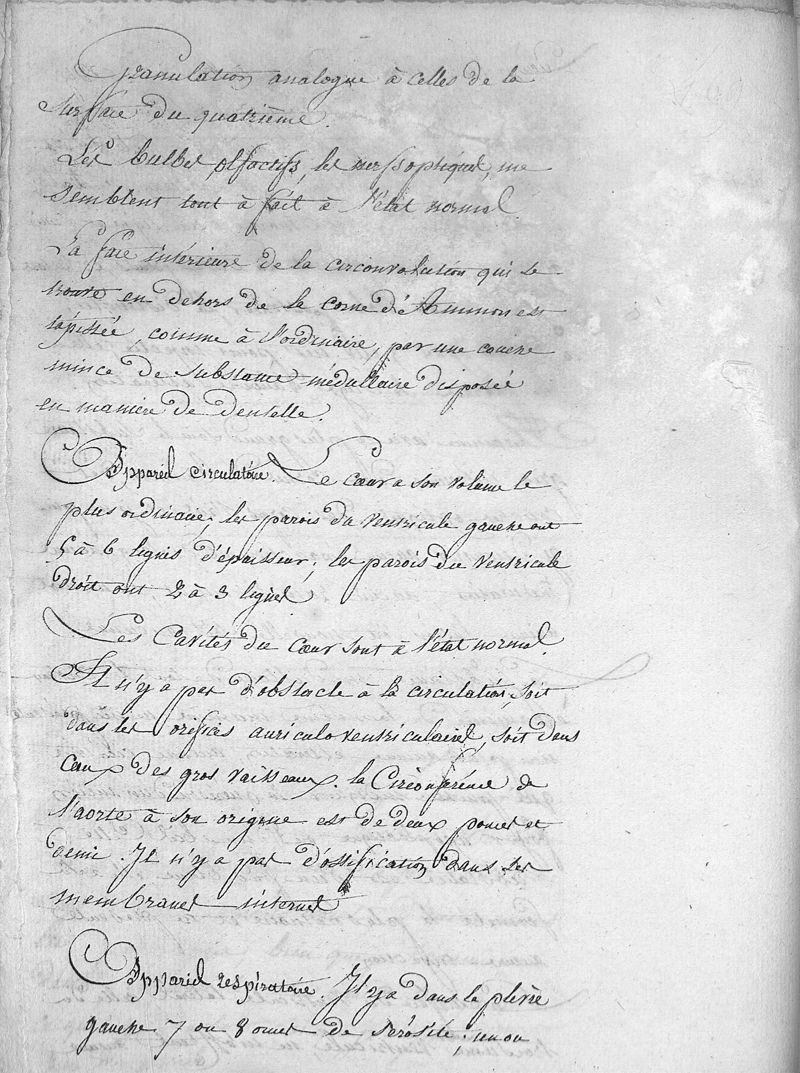 Granulation analogue à celles de la
surface du quatrième.
Les bulbes olfactifs, les nerfs optiques, me
semblent tout à fait à l'état normal.
La face intérieure de la circonvolution qui se
trouve en dehors de la corne d'Ammon est
tapissée, comme à l'ordinaire, par une couche
mince de substance médullaire disposée
en manière de dentelle.
Appareil circulatoire. Le cœur a son volume le
plus ordinaire; les parois du ventricule gauche ont
5 à 6 lignes d'épaisseur; les parois du ventricule
droit ont 2 à 3 lignes
Les Cavités du cœur sont à l'état normal.
Il n'y a pas d'obstacle à la circulation, soit
dans les orifices auriculo ventriculaires, soit dans
ceux des gros vaisseaux. la Circonférence de
l'aorte à son origine est de deux pouces et
demi. Il n'y a pas d'ossification dans ses
membranes internes
Appareil respiratoire. Il y a dans la plèvre
gauche 7 ou 8 onces de sérosité; un ou